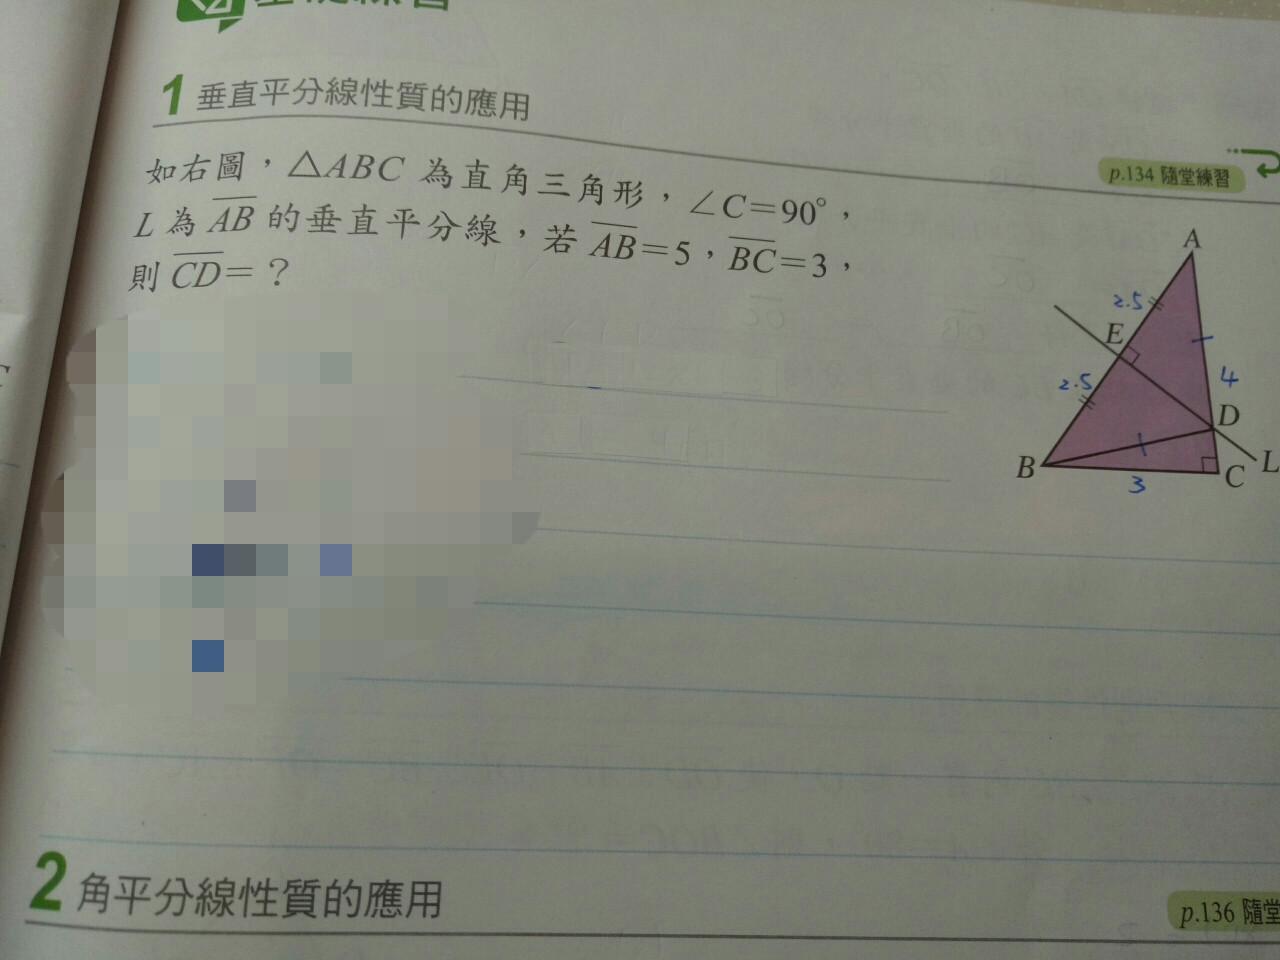 基礎練習
1 垂直平分線性質的應用
p.134 隨堂練習
如右圖，△ABC 為直角三角形，∠C＝90°，
L 為 AB 的垂直平分線，若 AB＝5，BC＝3，
則 CD＝？
A
2.5
E
2.5
4
D
B
C
L
3
2 角平分線性質的應用
p.136 隨堂